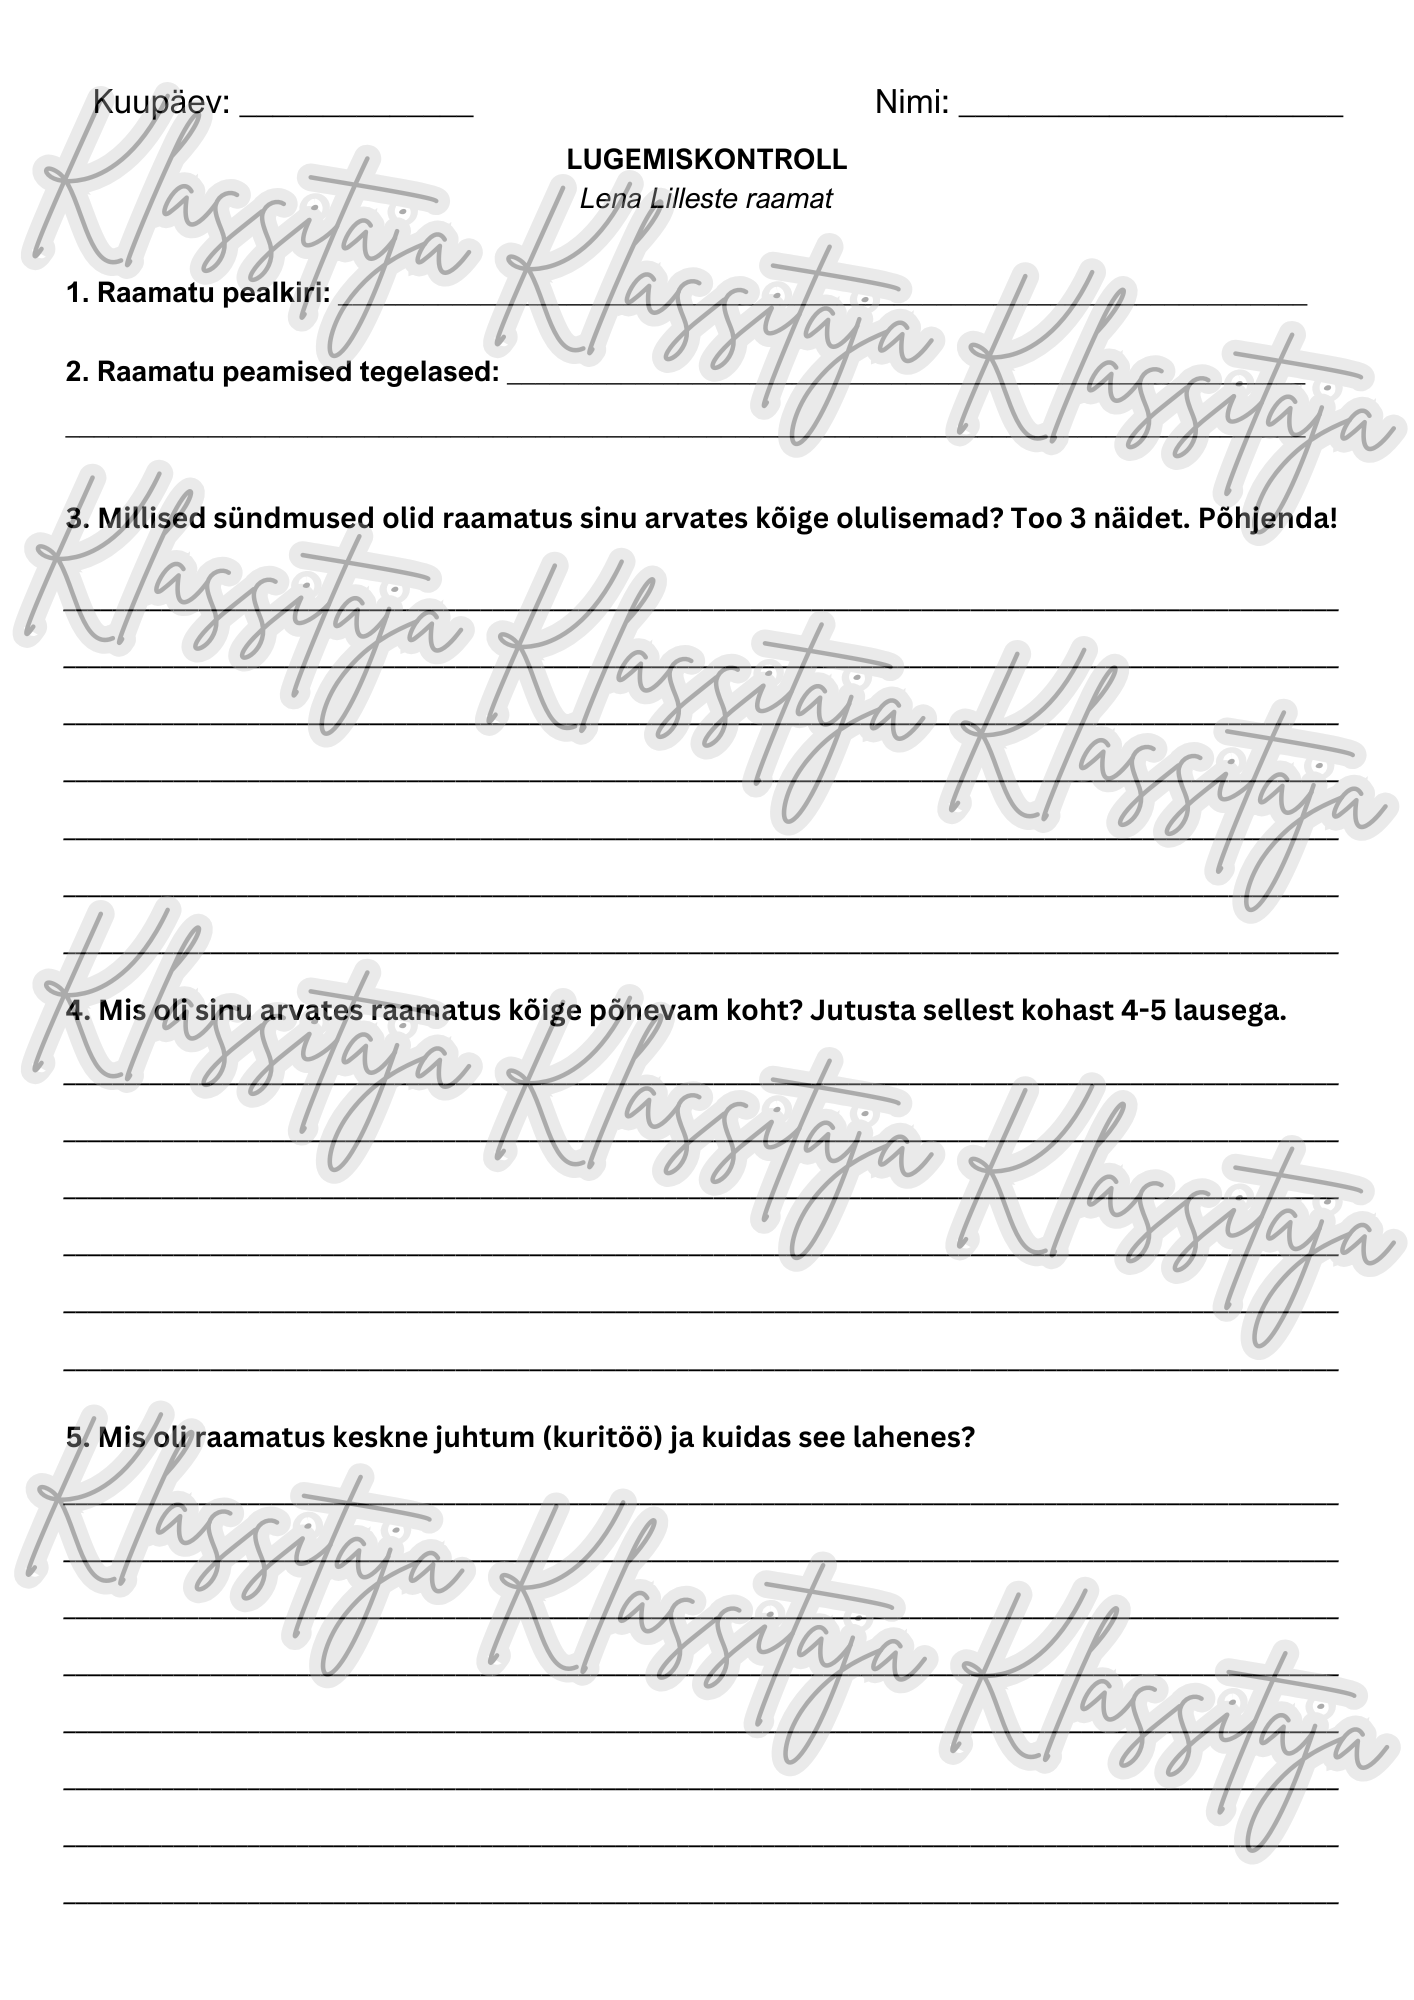 Kuupäev: ______________ Nimi: _______________________
LUGEMISKONTROLL
Lena Lilleste raamat
1. Raamatu pealkiri: ______________________________
2. Raamatu peamised tegelased: ______________________________
3. Millised sündmused olid raamatus sinu arvates kõige olulisemad? Too 3 näidet. Põhjenda!
4. Mis oli sinu arvates raamatus kõige põnevam koht? Jutusta sellest kohast 4-5 lausega.
5. Mis oli raamatus keskne juhtum (kuritöö) ja kuidas see lahenes?
Klassitäja Klassitäja Klassitäja
Klassitäja Klassitäja Klassitäja
Klassitäja Klassitäja Klassitäja
Klassitäja Klassitäja Klassitäja